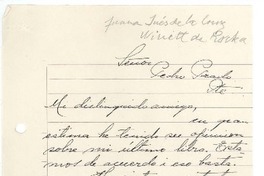 Juana Inés de la Cruz
Winett de Rokha
Señor
Pedro Prado
Pte
Mi distinguido amigo,
en gran
estima he tenido su opinion
sobre mi último libro. Esta-
mos de acuerdo i eso basta.